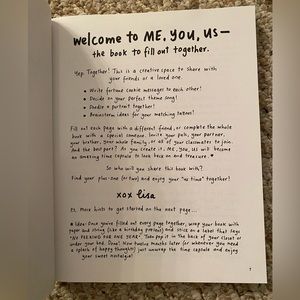 welcome to ME, YOU, US—
the book to fill out together.
Yep. Together! This is a creative space to share with
your friends or a loved one.
• Write fortune cookie messages to each other!
• Decide on your perfect theme song!
• Doodle a portrait together!
• Brainstorm ideas for your matching tattoos!
Fill out each page with a different friend, or complete the whole
book with a special someone. Invite your pals, your partner,
your brother, your whole family, or all of your classmates to join.
And the best part? As you create it, ME, YOU, US will become
an amazing time capsule to look back on and treasure.
So who will you share this book with?
Find your plus-one (or two) and enjoy your "us time" together!
xox lisa
PS. More hints to get started on the next page...
Idea: Once you've filled out every page together, wrap your book with
paper and string (like a birthday present) and stick on a label that says
"NO PEEKING FOR ONE YEAR." Then pop it in the back of your closet or
under your bed. Done! Now twelve months later (or whenever you need
a splash of happy thoughts) just unwrap the time capsule and enjoy
your sweet nostalgia!
7